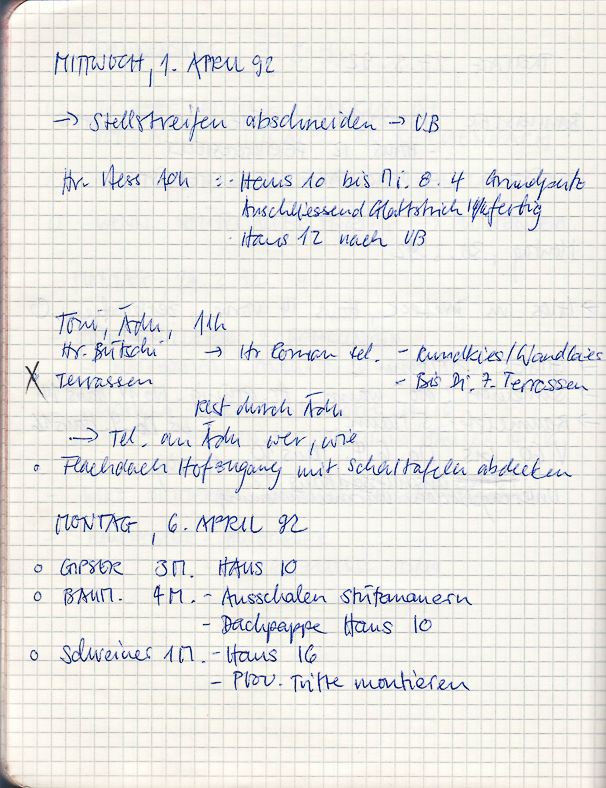 MITTWOCH, 1. APRIL 92
→ Stellstreifen abschneiden → UB
Hr. Hess 10h : - Haus 10 bis Mi. 8. 4 Grundputz
Anschliessend Glattstrich fertig
· Haus 12 nach UB
Toni, Ädu, 11h
Hr. Bütschi → Hr Roman tel. - Rundkies/Wandkies
x Terrassen - Bis Di. 7. Terrassen
Rest durch Ädu
→ Tel. an Ädu wer, wie
o Flachdach Hofzugang mit Schaltafeln abdecken
MONTAG, 6. APRIL 92
o GIPSER 3M. HAUS 10
o BAUM. 4M. - Ausschalen Stützmauern
- Dachpappe Haus 10
o Schreiner 1M. - Haus 16
- Prov. Tritte montieren